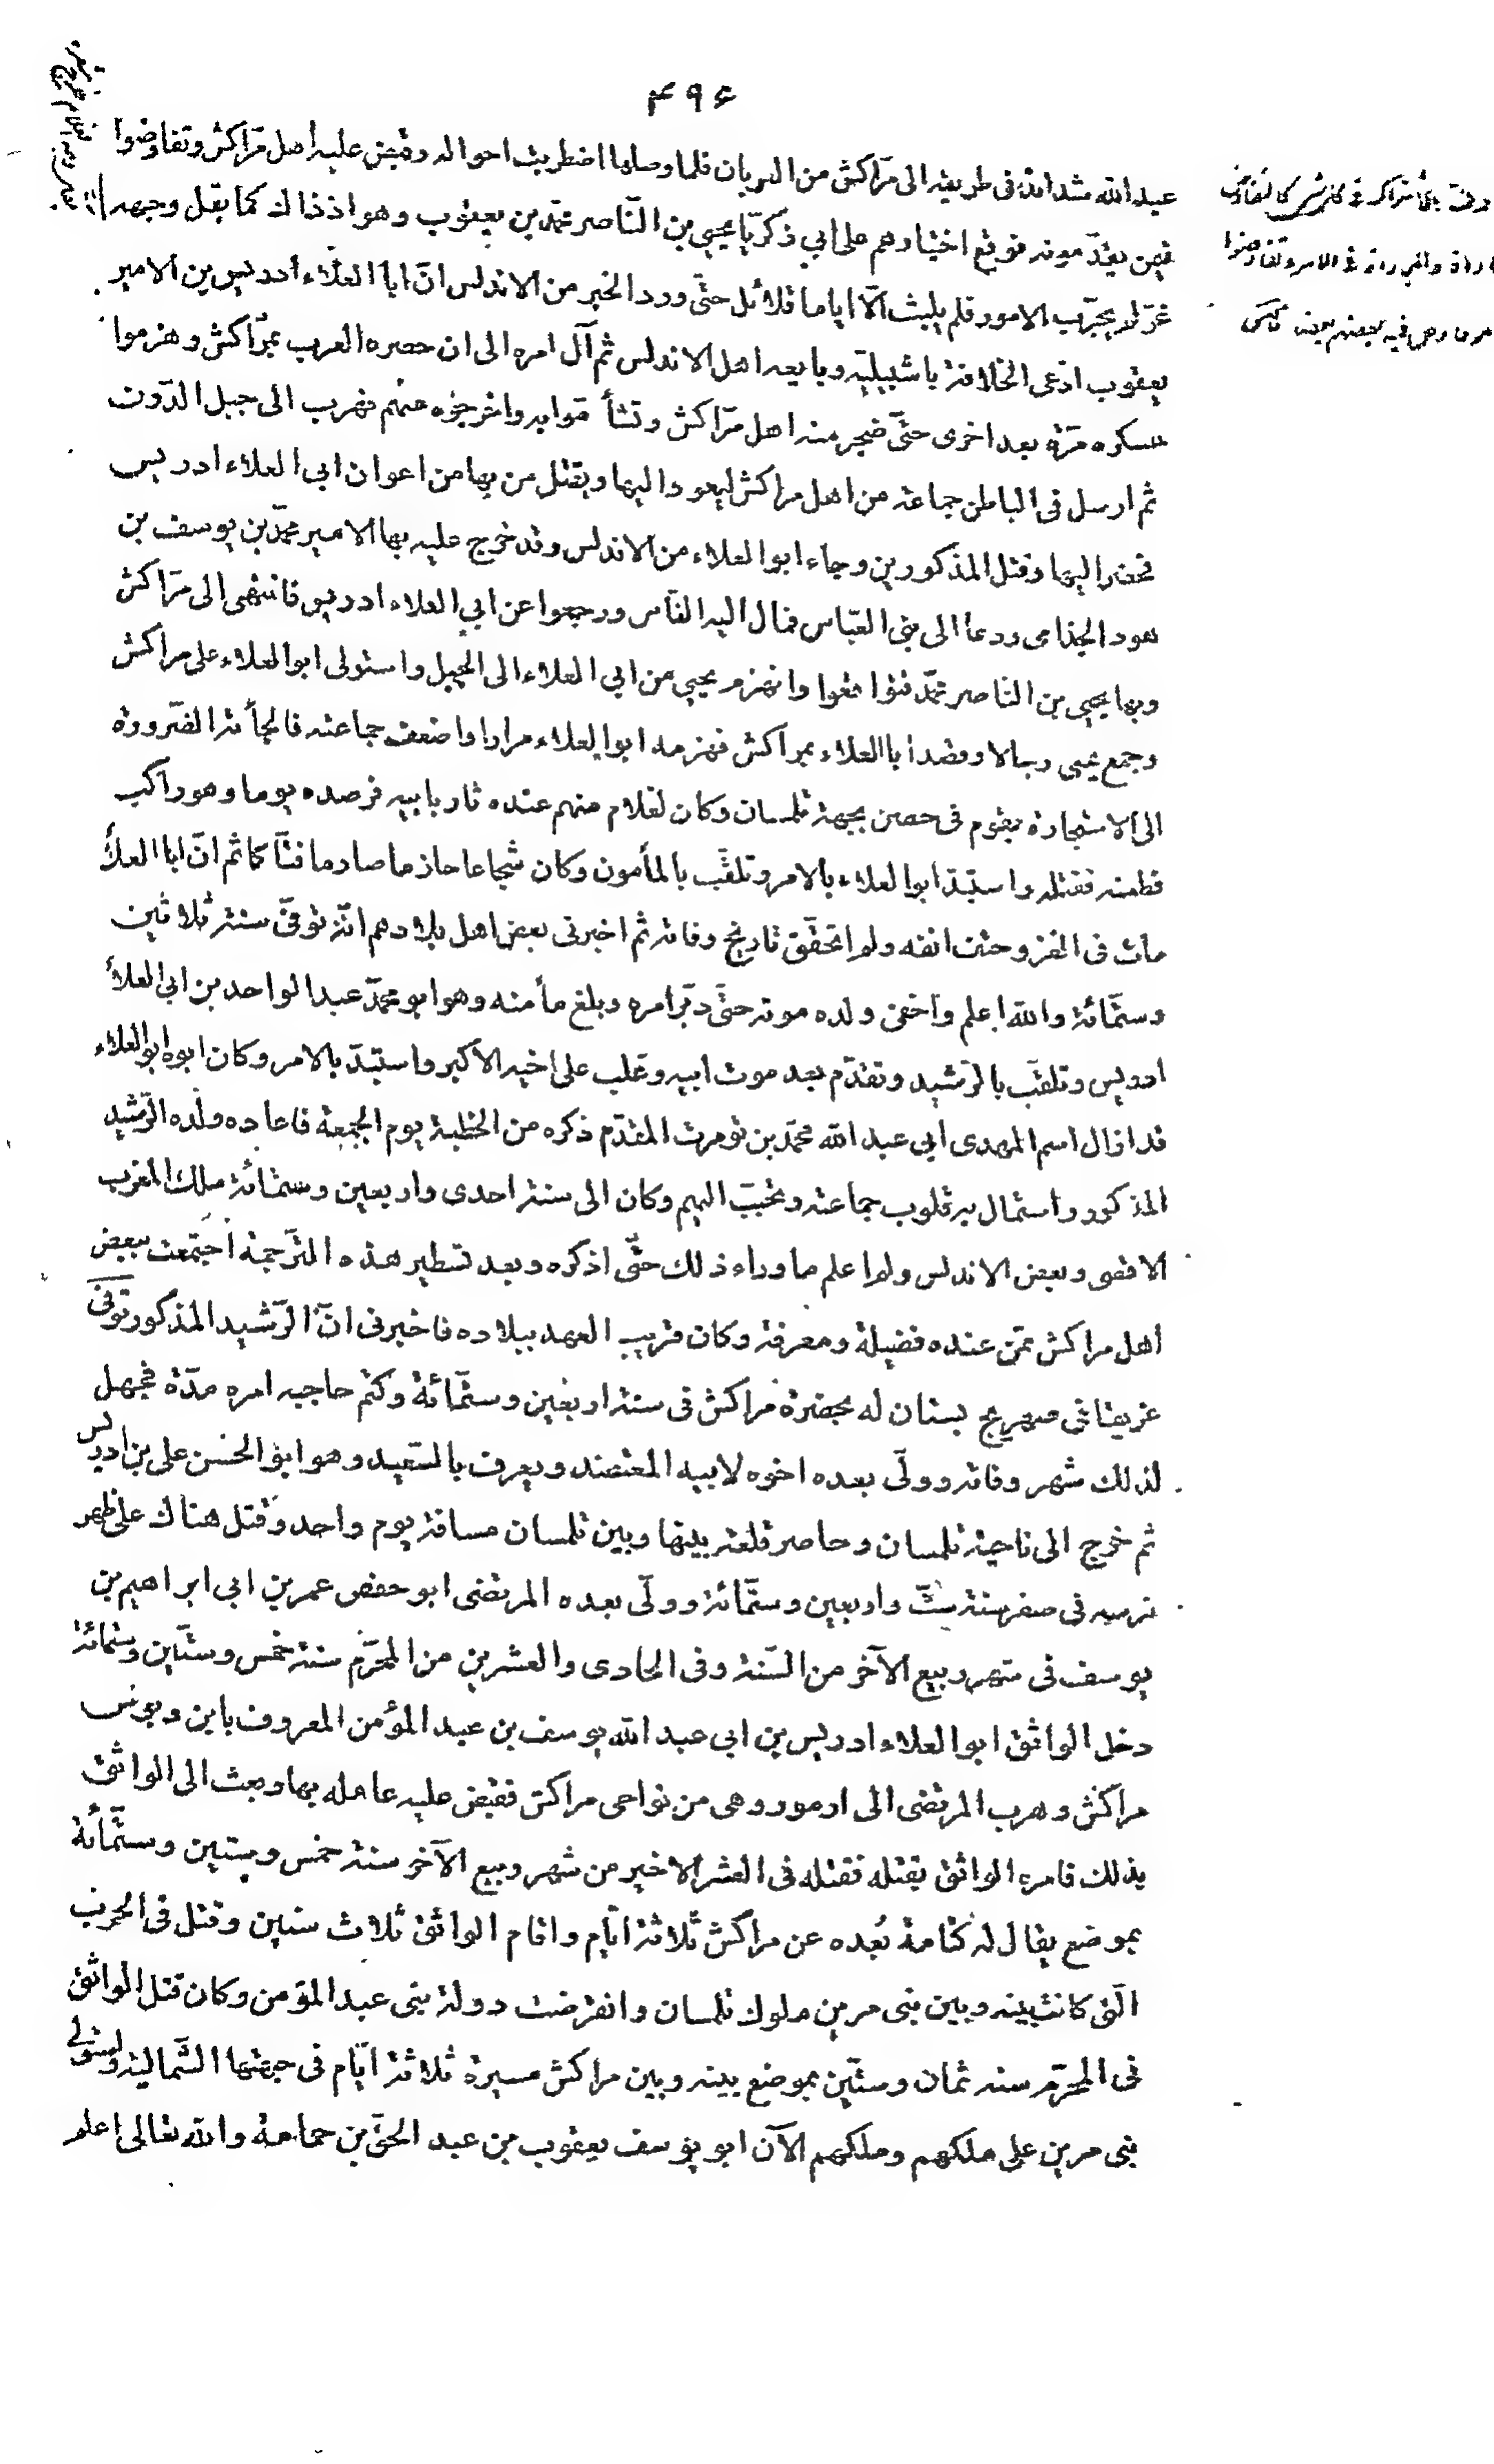 ۴۹۶
عبد الله شدائد فى طريقه الى مرّاكش من العربان فلما وصلها اضطربت احواله وقبض عليه اهل مرّاكش وتفاوضوا
فيمن يقدّمونه فوقع اختيارهم على ابي ذكريّا يحيى بن النّاصر محمّد بن يعقوب وهو اذ ذاك كما بقل وجهه
غرّ لم يجرّب الامور فلم يلبث الّا اياما قلائل حتّى ورد الخبر من الاندلس انّ ابا العلاء ادريس بن الامير
يعقوب ادّعى الخلافة باشبيليّه وبايعه اهل الاندلس ثم آل امره الى ان حصره العرب بمرّاكش وهزموا
عسكره مرّة بعد اخرى حتّى ضجر منه اهل مرّاكش وتشأموا به واخرجوه عنهم فهرب الى جبل الدّرن
ثم ارسل فى الباطن جماعة من اهل مراكش ليعود اليها ويقتل من بها من اعوان ابى العلاء ادريس
فحضر اليها وقتل المذكورين وجاء ابو العلاء من الاندلس وقد خرج عليه بها الامير محمّد بن يوسف بن
هود الجذامى ودعا الى بنى العبّاس فمال اليه النّاس ورجعوا عن ابي العلاء ادريس فانتهى الى مرّاكش
وبها يحيى بن النّاصر محمّد فتوا قعوا وانهزم يحيى من ابي العلاء الى الجبل واستولى ابو العلاء على مراكش
وجمع يحيى رجالا وقصد ابا العلاء بمراكش فهزمه ابو العلاء مرارا واضعف جماعته فالجأته الضّرورة
الى الاستجارة بقوم فى حصن بجهة تلمسان وكان لغلام منهم عنده ثار بابيه فرصده يوما وهو راكب
فطعنه فقتله واستبدّ ابو العلاء بالامر وتلقّب بالمأمون وكان شجاعا حازما صارما فتّاكا ثم انّ ابا العلأ
مات فى الغزو حتف انفه ولم اتحقّق تاريخ وفاته ثم اخبرنى بعض اهل بلادهم انّه توفّى سنة ثلاثين
وستّمائة والله اعلم واخفى ولده موته حتّى دبّر امره وبلغ مأمنه وهو ابو محمّد عبد الواحد بن ابي العلأ
ادريس وتلقّب بالرّشيد وتقدّم بعد موت ابيه وغلب على اخيه الاكبر واستبدّ بالامر وكان ابوه ابو العلاء
قد ازال اسم المهدى ابي عبد الله محمّد بن تومرت المقدّم ذكره من الخطبة يوم الجمعة فاعاده ولده الرّشيد
المذكور واستمال به قلوب جماعته وتحبّب اليهم وكان الى سنة احدى واربعين وستمائة ملك المغرب
الاقصى وبعض الاندلس ولم اعلم ما وراء ذلك حتّى اذكره وبعد تسطير هذه التّرجمة اجتمعت ببعض
اهل مراكش ممّن عنده فضيلة ومعرفة وكان قريب العهد ببلاده فاخبرنى انّ الرّشيد المذكور توفّى
غريقا فى صهريج بستان له بحضرة مراكش فى سنة اربعين وستّمائة وكتم حاجبه امره مدّة فجهل
لذلك شهر وفاته وولّى بعده اخوه لابيه المعتضد ويعرف بالسّعيد وهو ابو الحسن على بن ادريس
ثم خرج الى ناحية تلمسان وحاصر قلعة بينها وبين تلمسان مسافة يوم واحد وقتل هناك على ظهر
فرسه فى صفر سنة ستّ واربعين وستّمائة وولّى بعده المرتضى ابو حفص عمر بن ابى ابراهيم بن
يوسف فى شهر ربيع الآخر من السّنة وفى الحادى والعشرين من المحرّم سنة خمس وستّين وستمائة
دخل الواثق ابو العلاء ادريس بن ابى عبد الله يوسف بن عبد المؤمن المعروف بابن دبوس
مراكش وهرب المرتضى الى ازمور وهى من نواحى مراكش فقبض عليه عامله بها وبعث الى الواثق
بذلك فامره الواثق بقتله فقتله فى العشر الاخير من شهر ربيع الآخر سنة خمس وستين وستّمأئة
بموضع يقال له كتامة بُعده عن مراكش ثلاثة ايّام واقام الواثق ثلاث سنين وقتل فى الحرب
الّتى كانت بينه وبين بنى مرين ملوك تلمسان وانقرضت دولة بنى عبد المؤمن وكان قتل الواثق
فى المحرّم سنة ثمان وستّين بموضع بينه وبين مراكش مسيرة ثلاثة ايّام فى جهتها الشّمالية واستولى
بنى مرين على ملكهم وملكهم الآن ابو يوسف يعقوب بن عبد الحقّ بن حمامة والله تعالى اعلم